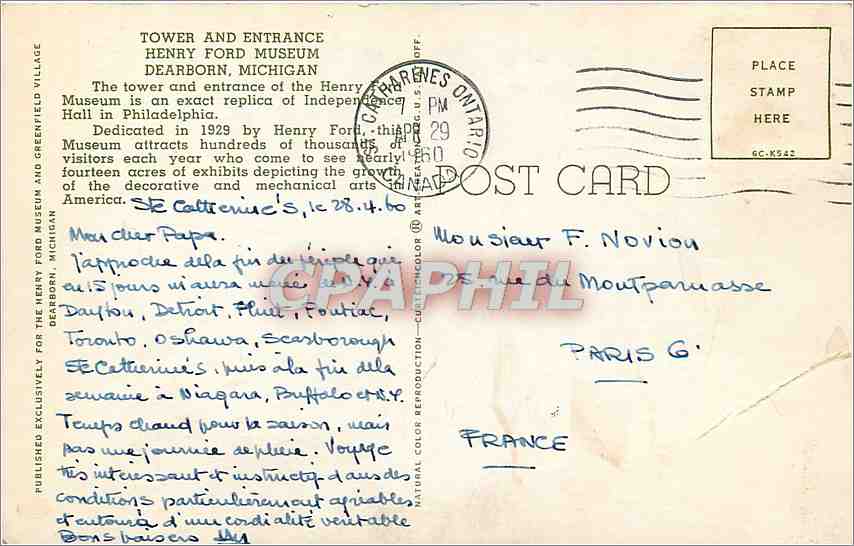 TOWER AND ENTRANCE
HENRY FORD MUSEUM
DEARBORN, MICHIGAN
The tower and entrance of the Henry Ford
Museum is an exact replica of Independence
Hall in Philadelphia.
Dedicated in 1929 by Henry Ford, this
Museum attracts hundreds of thousands of
visitors each year who come to see nearly
fourteen acres of exhibits depicting the growth
of the decorative and mechanical arts in
America.
Ste Catherine's, le 28.4.60
Mon cher Papa.
J'approche de la fin du périple qui
en 15 jours m'aura mené de N.Y. à
Dayton, Detroit, Flint, Pontiac,
Toronto, Oshawa, Scarborough
Ste Catherine's, puis à la fin de la
semaine à Niagara, Buffalo et N.Y.
Temps chaud pour la saison, mais
pas une journée de pluie. Voyage
très intéressant et instructif dans des
conditions particulièrement agréables
et entouré d'une cordialité véritable
Bons baisers
PUBLISHED EXCLUSIVELY FOR THE HENRY FORD MUSEUM AND GREENFIELD VILLAGE
DEARBORN, MICHIGAN
NATURAL COLOR REPRODUCTION—CURTEICHCOLOR ® ART
U.S. OFF.
ST. CATHARINES ONTARIO
7 PM
APR 29
1960
CANADA
POST CARD
PLACE
STAMP
HERE
GC-K542
Monsieur F. Novion
25 rue du Montparnasse
PARIS 6.
FRANCE
CPAPHIL